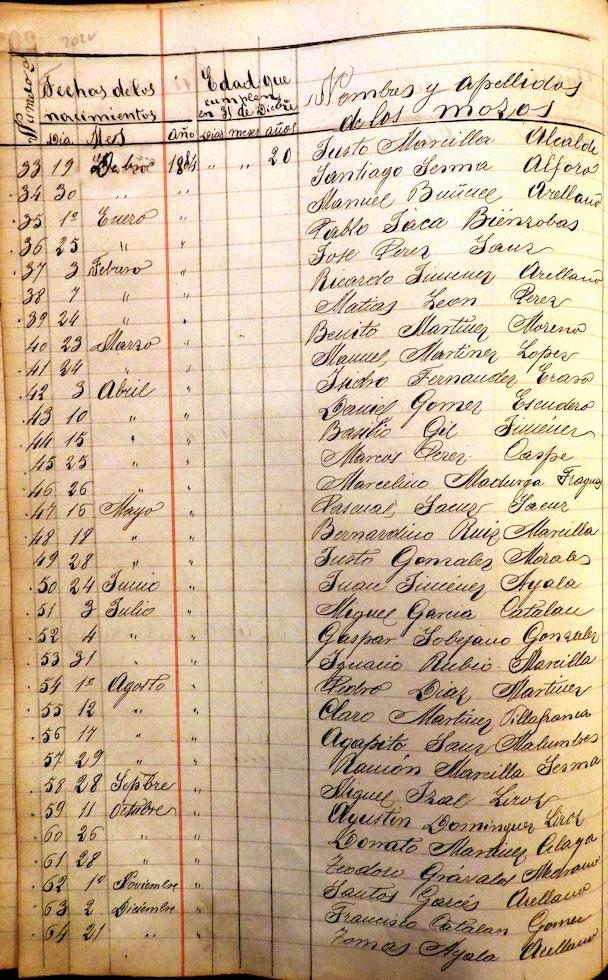 2021
Numero
Fechas de los nacimientos
Edad que cumplen en 31 de Dicbre
Nombres y apellidos de los mozos
Dia Mes Año Dias meses años
33 19 1884 " " 20 Justo Marcilla Alcalde
34 30 " " Santiago Sesma Alforo
35 1º Enero " Manuel Buñuel Arellano
36 25 " " Pablo Jaca Bienzobas
37 3 Febrero " Jose Perez Sanz
38 7 " " Ricardo Jimenez Arellano
39 24 " " Matias Leon Perez
40 23 Marzo " Benito Martinez Moreno
41 24 " " Manuel Martinez Lopez
42 3 Abril " Isidro Fernandez Eraso
43 10 " " Daniel Gomez Escudero
44 15 " " Basilio Gil Jiménez
45 25 " " Marcos Perez Caspe
46 26 " " Marcelino Madurga Fraguas
47 15 Mayo " Pascual Sanz Sanz
48 18 " " Bernardino Ruiz Marcilla
49 28 " " Justo Gonzalez Morales
50 24 Junio " Juan Jiménez Ayala
51 3 Julio " Miguel Garcia Catalan
52 4 " " Gaspar Sobejano Gonzalez
53 31 " " Ignacio Rubio Marcilla
54 1º Agosto " Pedro Diaz Martinez
55 12 " " Claro Martinez Villafranca
56 17 " " Agapito Sanz Malumbres
57 29 " " Ramón Marcilla Sesma
58 28 Septbre " Miguel Izal Liroz
59 11 Octubre " Agustin Dominguez Liroz
60 26 " " Donato Martinez
61 28 " " Teodoro Gravalos Medrano
62 1º Noviembre " Santos Garcés Arellano
63 2 Diciembre " Francisco Catalan Gomez
64 21 " " Tomas Ayala Arellano